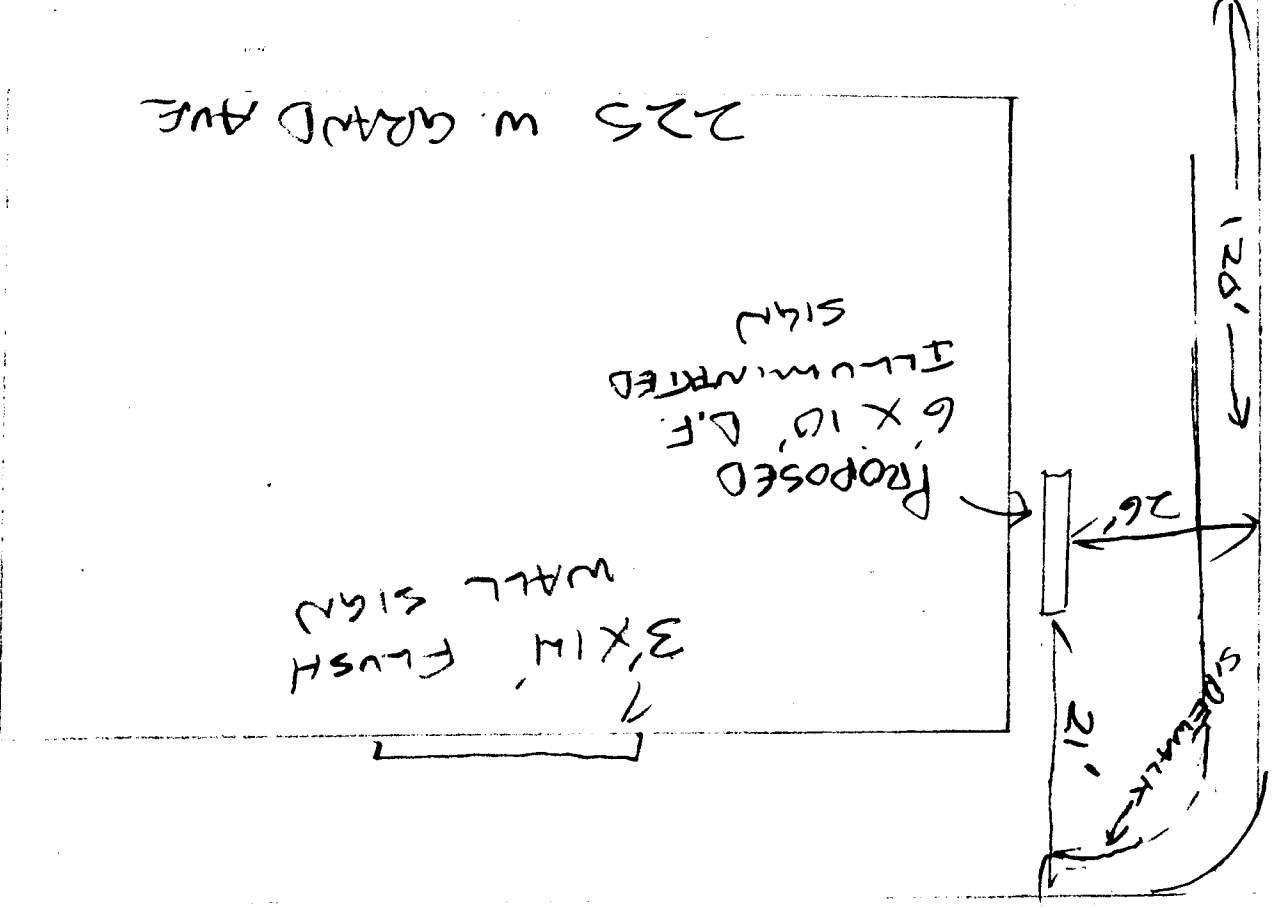 SIDEWALK
21'
3' X 14' FLUSH
WALL SIGN
26'
PROPOSED
6' X 10' D.F.
ILLUMINATED
SIGN
120'
225 W. GRAND AVE